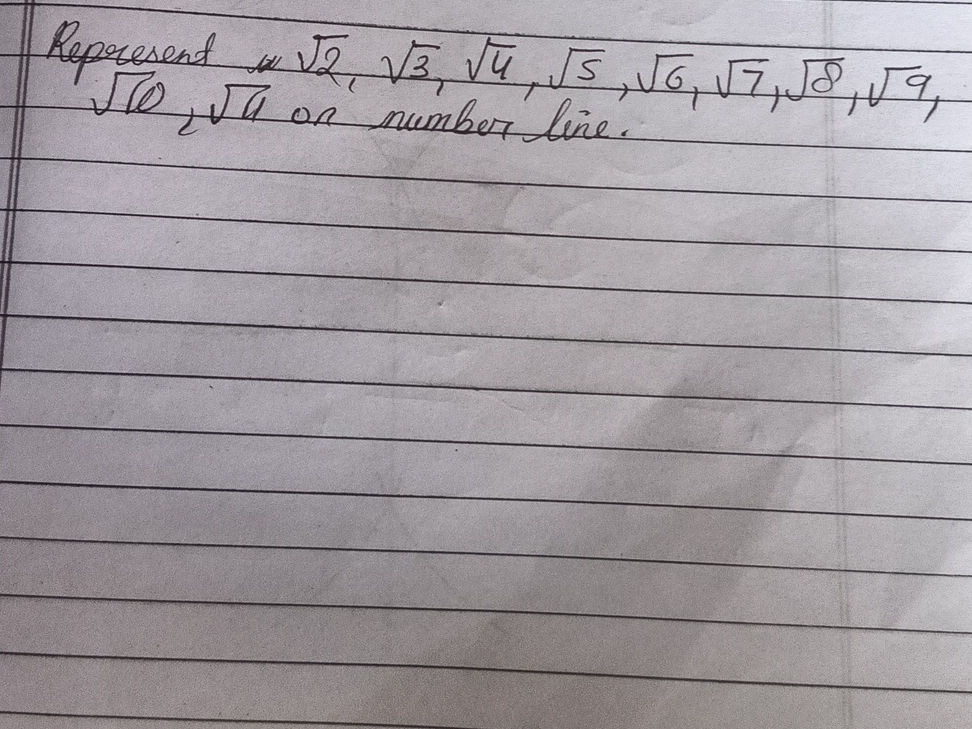 Represent √2, √3, √4, √5, √6, √7, √8, √9,
√10, √11 on number line.